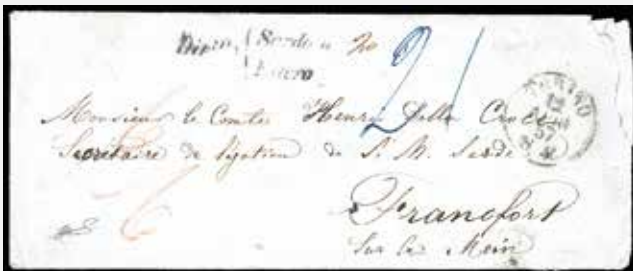 Diritto { Sardo 20
{ Estero
21
TORINO
12
Monsieur le Comte Henri Della Croce
Secrétaire de légation de S. M. Sarde
Francfort
Sur le Mein